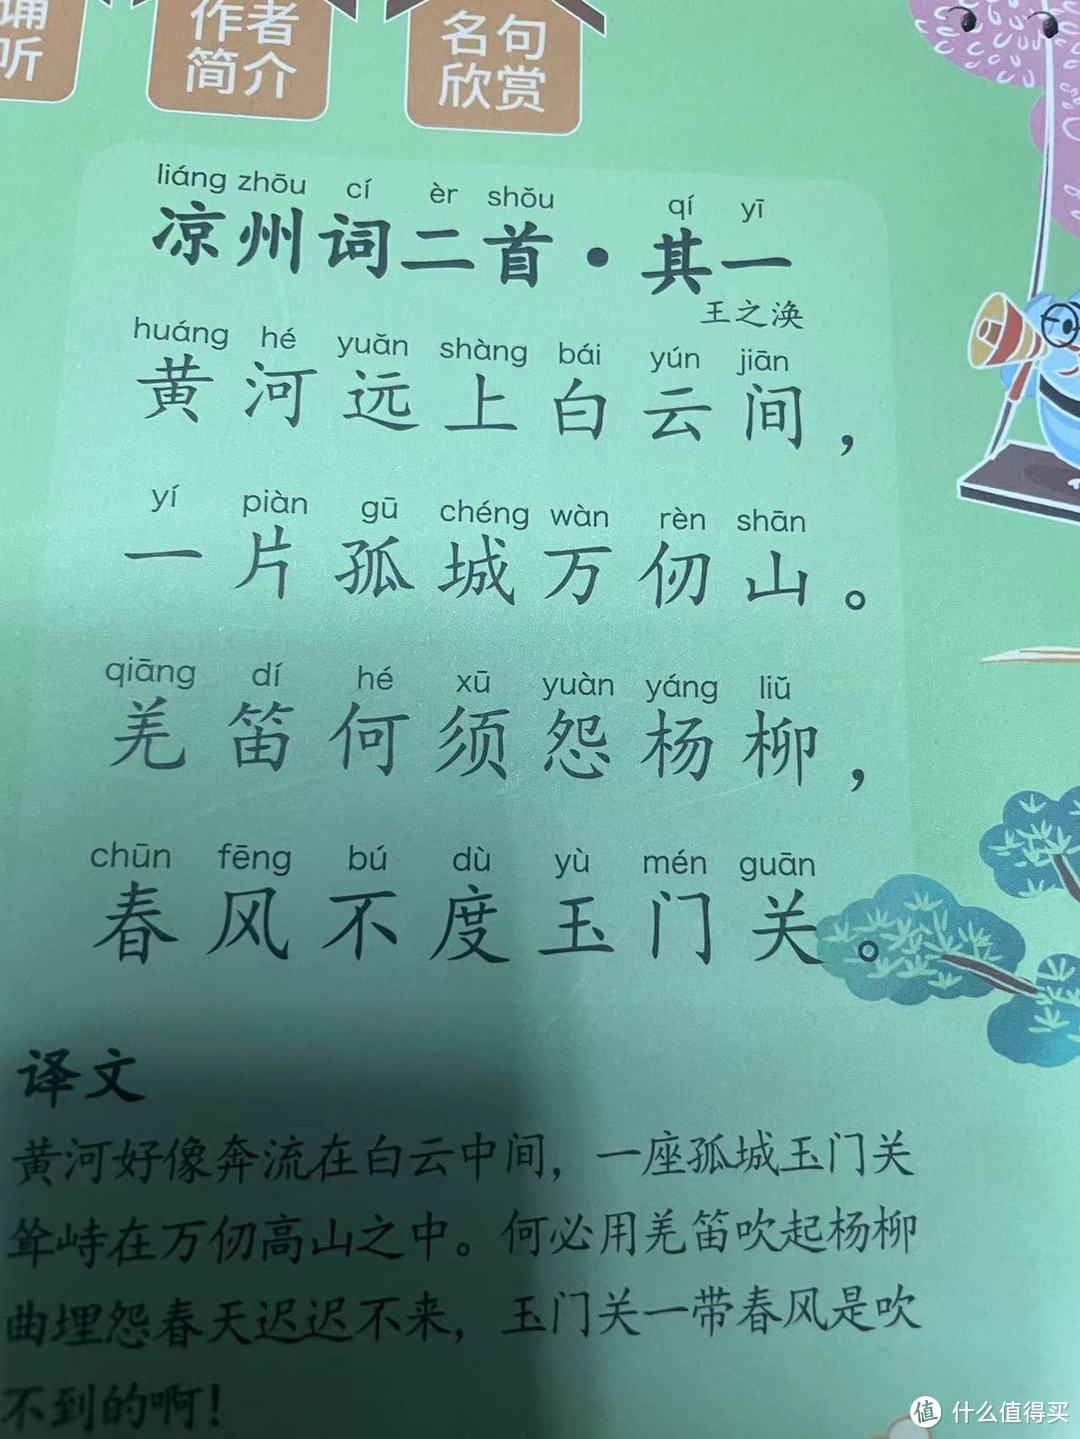 诵
听
作者
简介
名句
欣赏
liáng zhōu cí èr shǒu qí yī
凉州词二首·其一
王之涣
huáng hé yuǎn shàng bái yún jiān
黄河远上白云间，
yí piàn gū chéng wàn rèn shān
一片孤城万仞山。
qiāng dí hé xū yuàn yáng liǔ
羌笛何须怨杨柳，
chūn fēng bú dù yù mén guān
春风不度玉门关。
译文
黄河好像奔流在白云中间，一座孤城玉门关
耸峙在万仞高山之中。何必用羌笛吹起杨柳
曲埋怨春天迟迟不来，玉门关一带春风是吹
不到的啊！
值 什么值得买